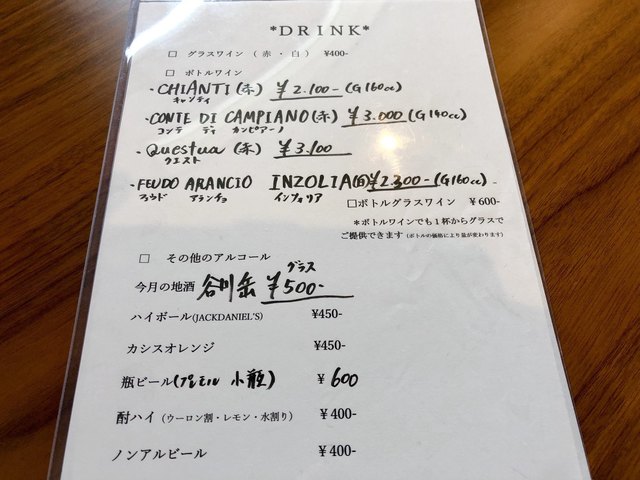 *DRINK*
□ グラスワイン（赤・白） ¥400-
□ ボトルワイン
・CHIANTI(赤) ¥2.100-(G160cc)
キャンティ
・CONTE DI CAMPIANO(赤) ¥3.000(G140cc)
コンテ ディ カンピアーノ
・Questua(赤) ¥3,100
クエスト
・FEUDO ARANCIO INZOLIA(白)¥2300-(G160cc)
フゥウド アランチョ インツォリア
□ボトルグラスワイン ¥600-
*ボトルワインでも1杯からグラスで
ご提供できます(ボトルの価格により量が変わります)
□ その他のアルコール
今月の地酒 谷川岳 グラス ¥500-
ハイボール(JACKDANIEL'S) ¥450-
カシスオレンジ ¥450-
瓶ビール(プレモル 小瓶) ¥600
酎ハイ（ウーロン割・レモン・水割り） ¥400-
ノンアルビール ¥400-